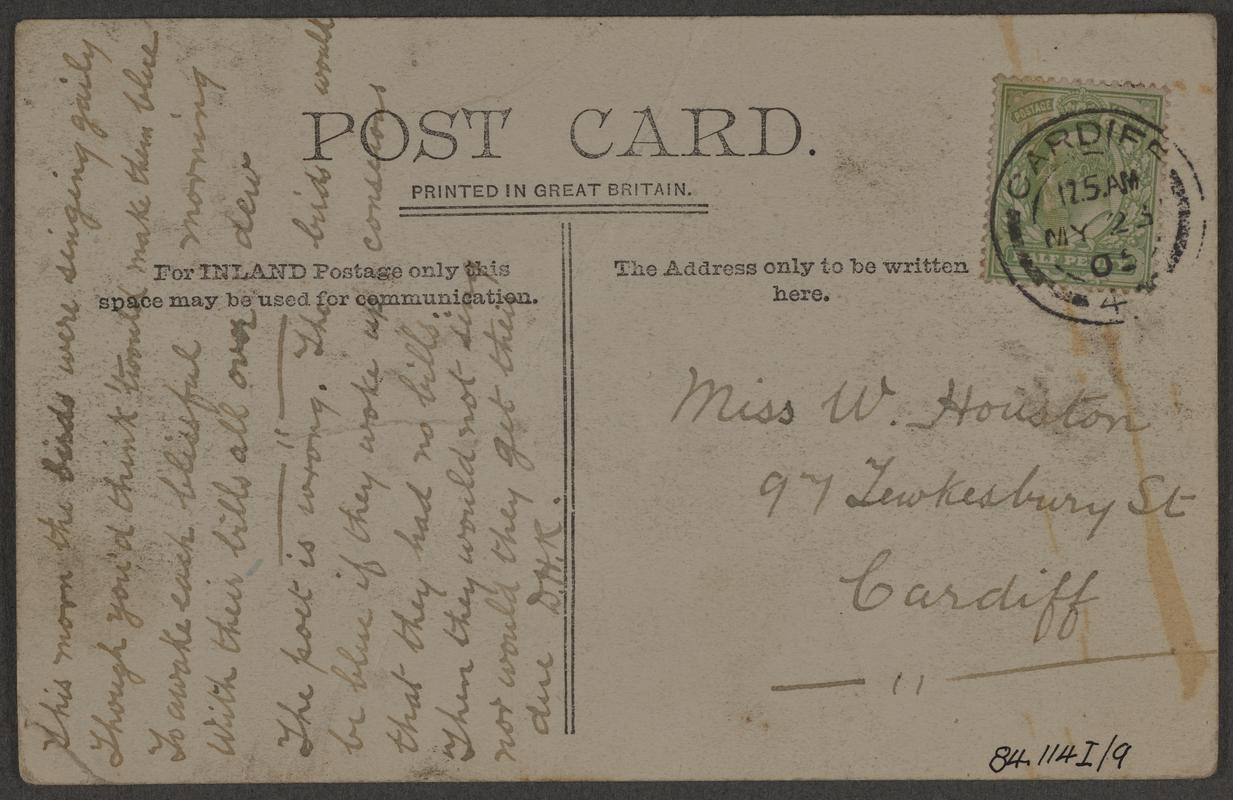 POST CARD.
PRINTED IN GREAT BRITAIN.
For INLAND Postage only this
space may be used for communication.
The Address only to be written
here.
This morn the birds were singing gaily
Though you'd think 'twould make them blue
To awake each blissful morning
With their bills all over dew
— " —
The poet is wrong. The birds would
be blue if they woke up conscious
that they had no bills.
Then they would not sing
nor would they get their
due D.H.K.
Miss W. Houston
97 Tewkesbury St
Cardiff
— " —
POSTAGE
HALF PE
CARDIFF
12.5.AM
MY 23
05
4
84.114I/9